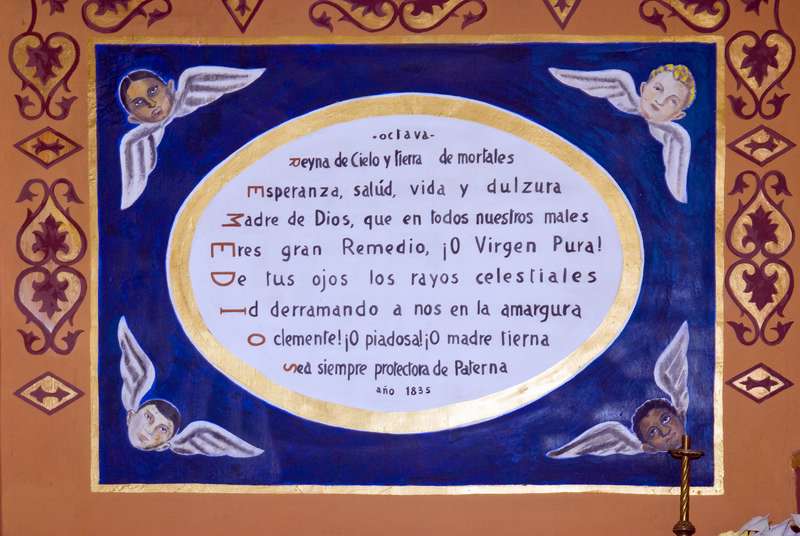 -octava-
Reyna de Cielo y tierra de mortales
Esperanza, salúd, vida y dulzura
Madre de Dios, que en todos nuestros males
Eres gran Remedio, ¡O Virgen Pura!
De tus ojos los rayos celestiales
Id derramando a nos en la amargura
O clemente! ¡O piadosa! ¡O madre tierna
Sea siempre protectora de Paterna
año 1835